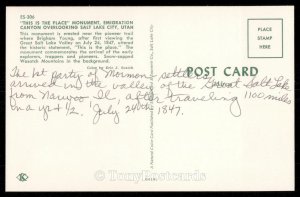 ES-306
"THIS IS THE PLACE" MONUMENT, EMIGRATION
CANYON OVERLOOKING SALT LAKE CITY, UTAH
This monument is erected near the pioneer trail
where Brigham Young, after first viewing the
Great Salt Lake Valley on July 24, 1847, uttered
the historic statement, "This is the place." The
monument commemorates the average early
explorers, trappers and pioneers. Snow-capped
Wasatch Mountains in the background.
Color by Eric J. Seaich
PLACE
STAMP
HERE
POST CARD
The 1st party of Mormon settlers
arrived in the valley of the Great Salt Lake
from Nauvoo Il, after traveling 1100 miles
in a yr + 1/2. July 24th 1847.
K
© TonyPostcards